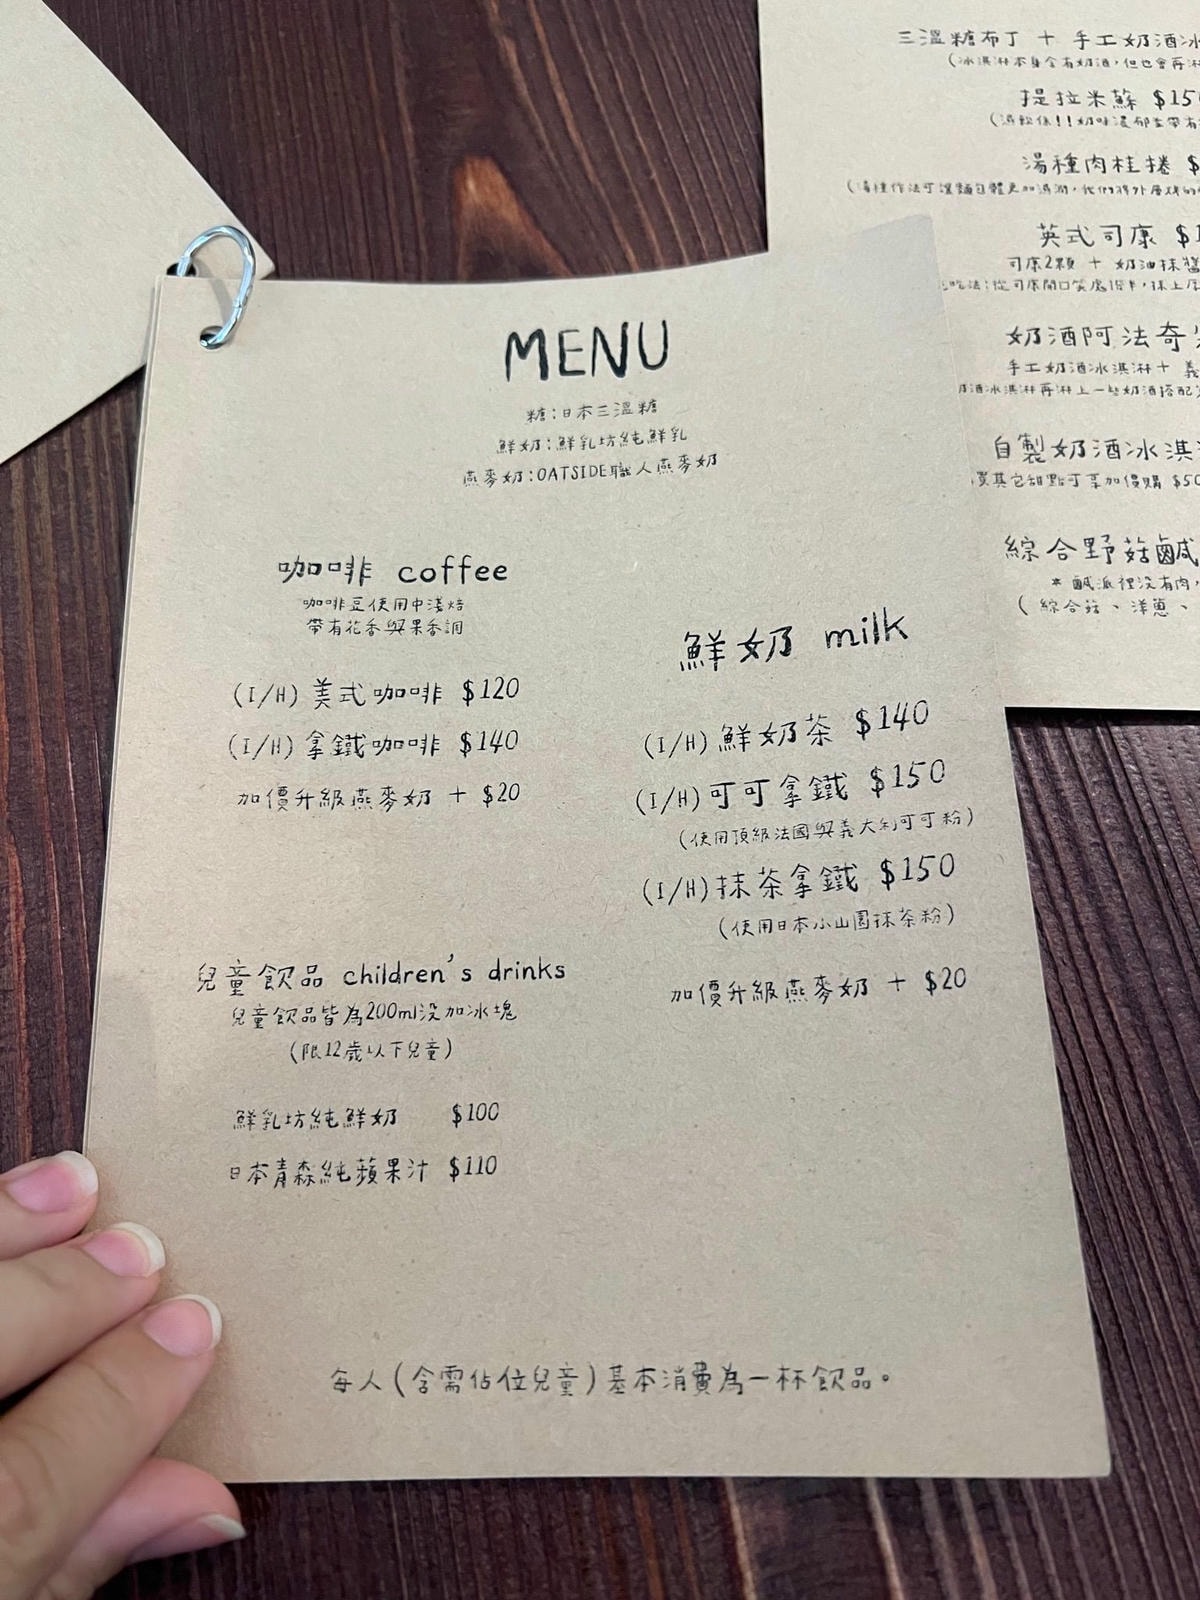 MENU
糖:日本三溫糖
鮮奶:鮮乳坊純鮮乳
燕麥奶:OATSIDE職人燕麥奶
咖啡 coffee
咖啡豆使用中淺焙
帶有花香與果香調
(I/H) 美式咖啡 $120
(I/H) 拿鐵咖啡 $140
加價升級燕麥奶 + $20
鮮奶 milk
(I/H) 鮮奶茶 $140
(I/H) 可可拿鐵 $150
(使用頂級法國與義大利可可粉)
(I/H) 抹茶拿鐵 $150
(使用日本小山園抹茶粉)
加價升級燕麥奶 + $20
兒童飲品 children's drinks
兒童飲品皆為200ml沒加冰塊
(限12歲以下兒童)
鮮乳坊純鮮奶 $100
日本青森純蘋果汁 $110
每人(含需佔位兒童)基本消費為一杯飲品。
三溫糖布丁 + 手工奶酒冰
(冰淇淋本身含有奶酒,但也會再淋
提拉米蘇 $150
湯種肉桂捲 $
(湯種作法可讓麵包體更加濕潤,
英式司康 $1
司康2顆 + 奶油抹醬
奶酒阿法奇
手工奶酒冰淇淋 + 義
酒冰淇淋再淋上一些奶酒搭配
自製奶酒冰淇
買其它甜點可享加價購 $50
綜合野菇鹹
* 鹹派裡沒有肉,
(綜合菇、洋蔥、